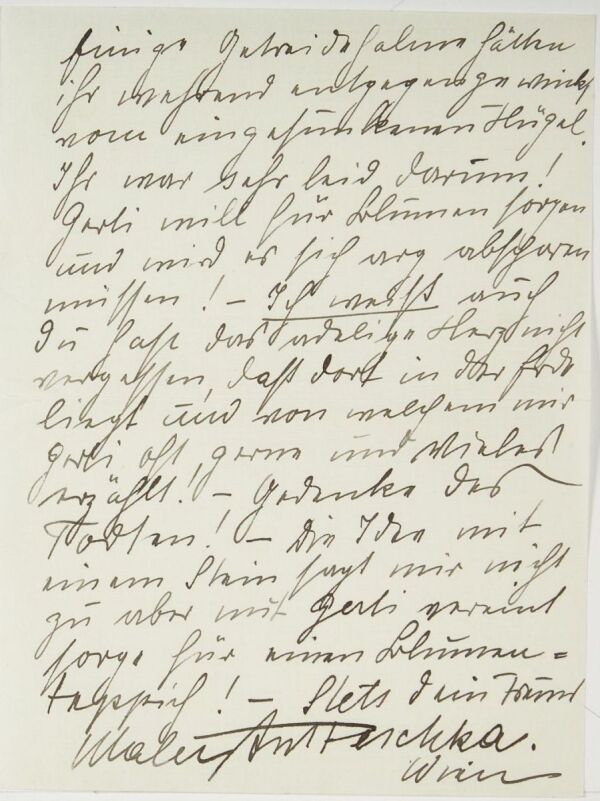 Einige Getreidehalme hätten
ihr wehrend entgegengewinkt
vom eingesunkenen Hügel.
Ihr war sehr leid darum!
Gerti will für Blumen sorgen
und wird es sich arg absparen
müssen! – Ich weiß auch
Du hast das adelige Herz nicht
vergessen, daß dort in der Erde
liegt und von welchem mir
Gerti oft, gerne und Vieles
erzählt! – Gedenke des
Todten! – Die Idee mit
einem Stein sagt mir nicht
zu aber mit Gerti vereint
sorge für einen Blumen=
teppich! – Stets dein Freund
Maler
Wien